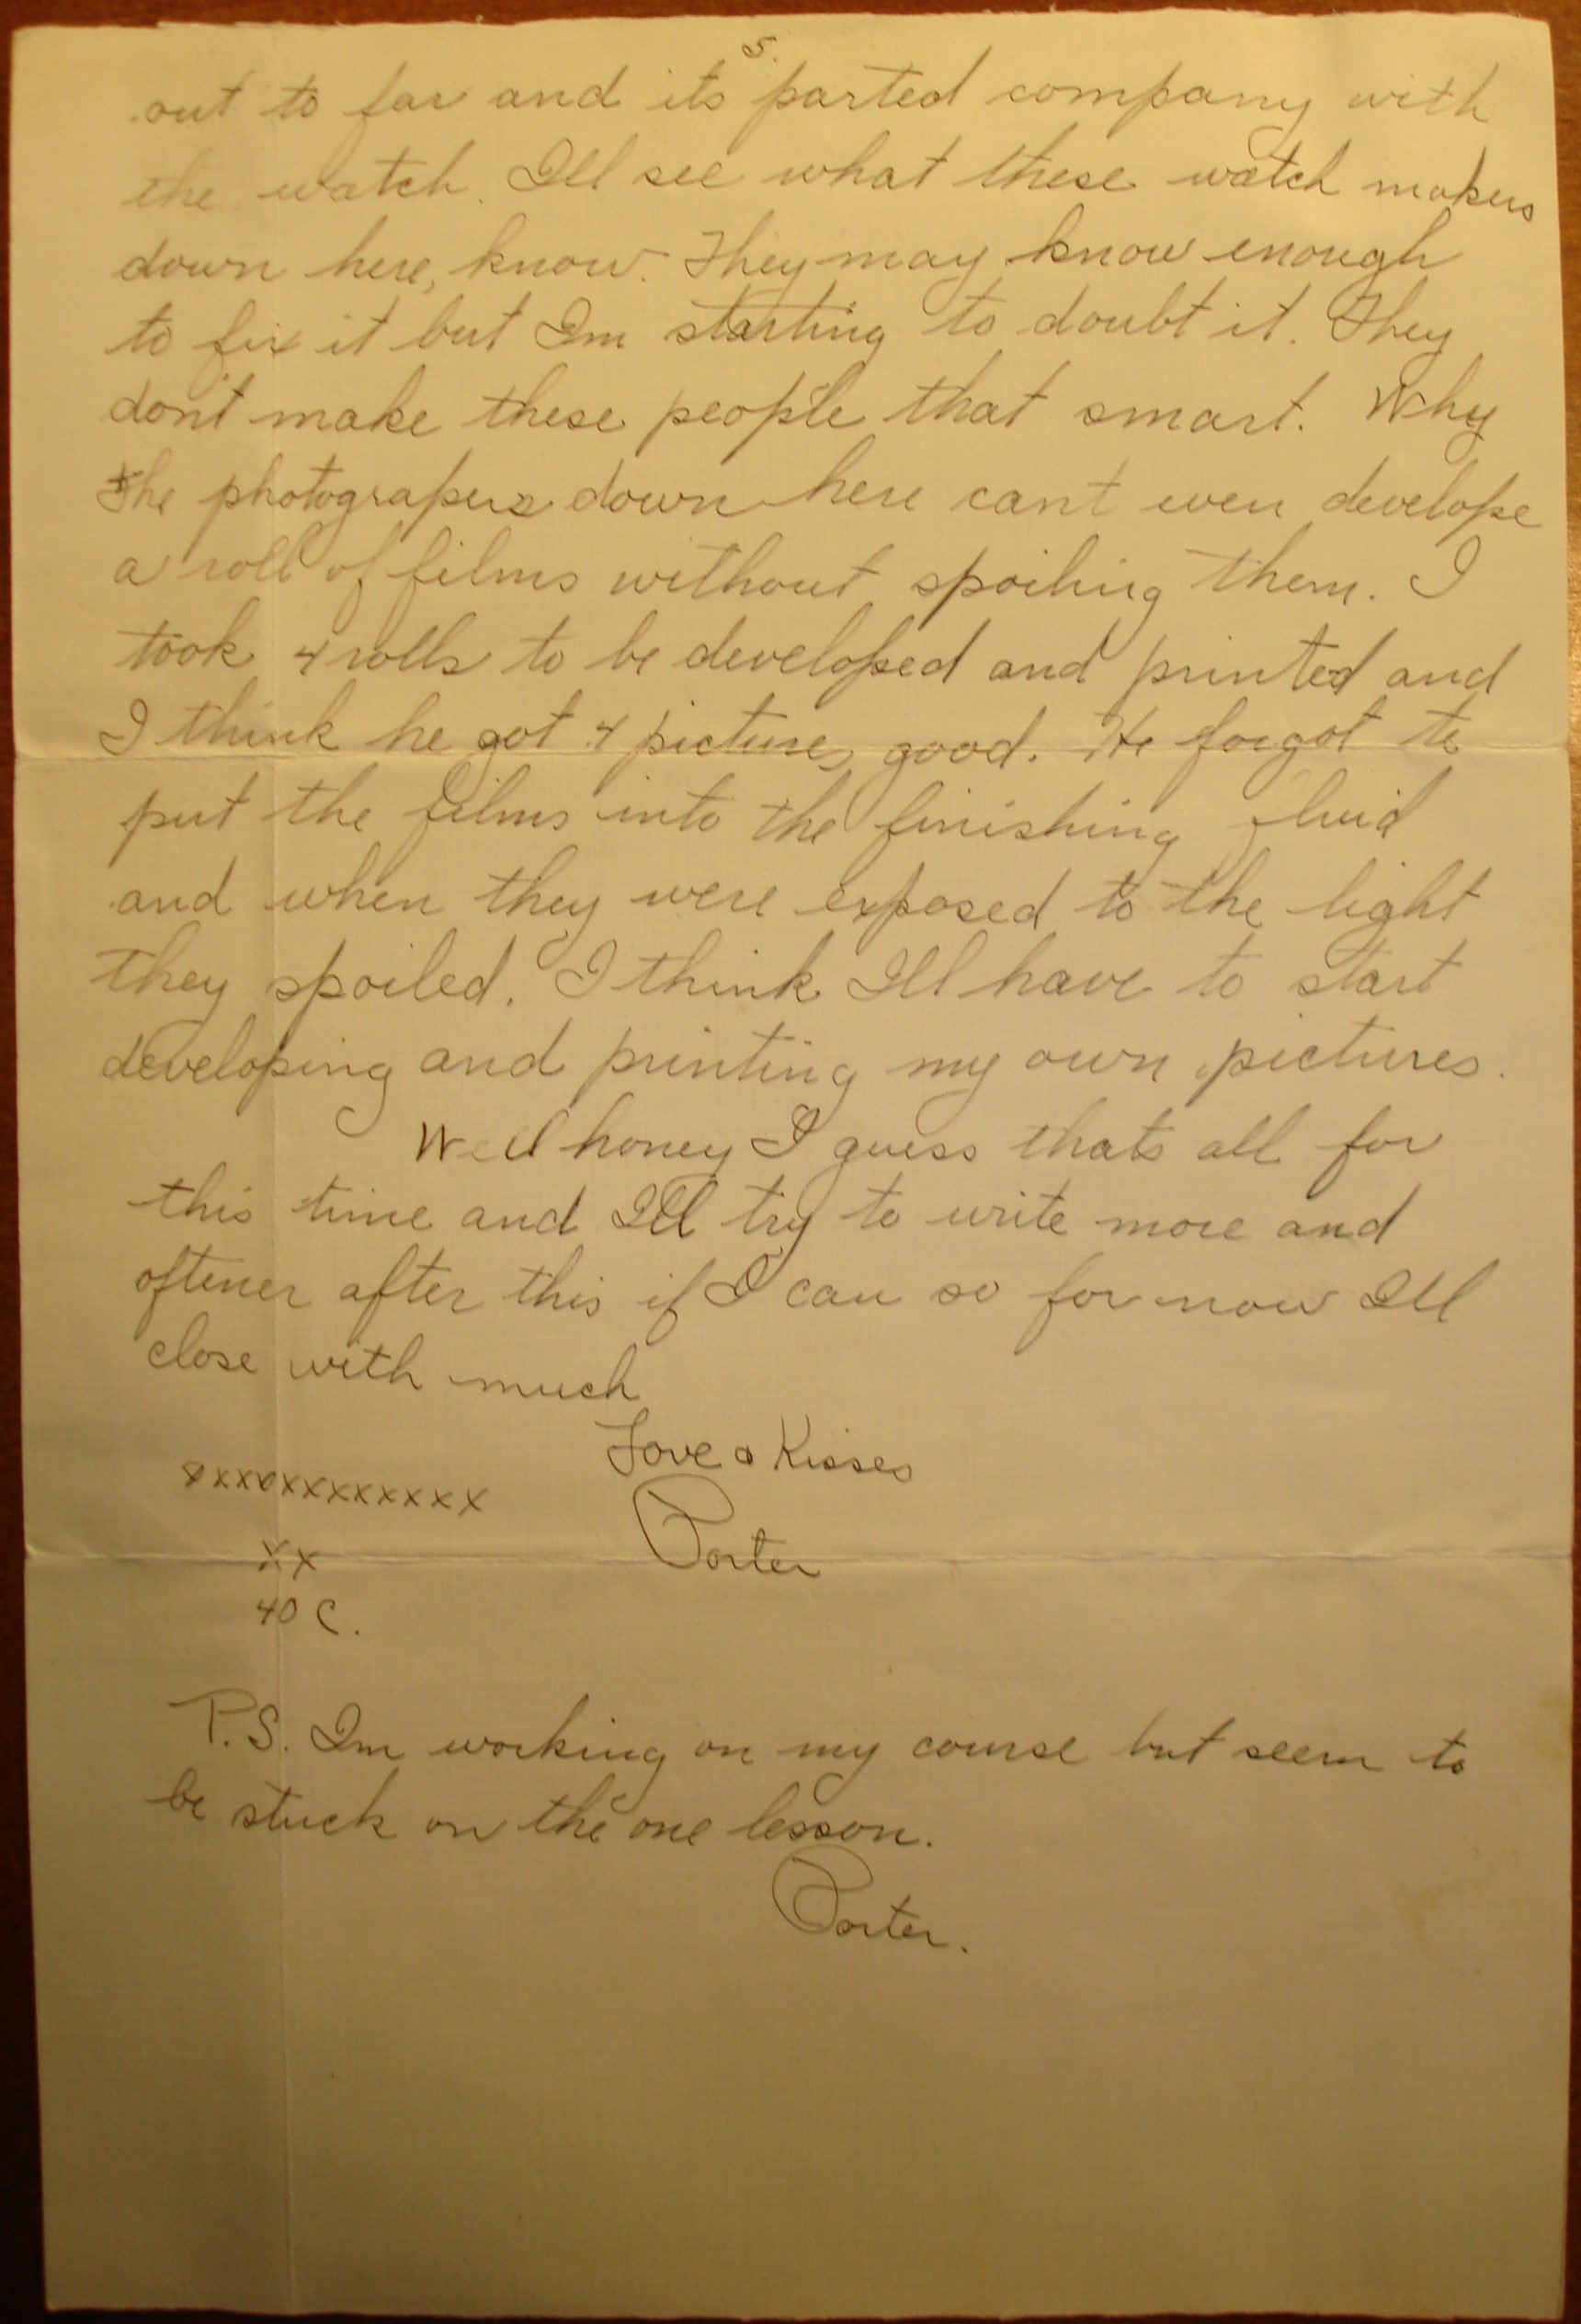 5.
out to far and its parted company with
the watch. Ill see what these watch makers
down here, know. They may know enough
to fix it but Im starting to doubt it. They
don't make these people that smart. Why
the photograpers down here cant even develope
a roll of films without spoiling them. I
took 4 rolls to be developed and printed and
I think he got 4 pictures good. He forgot to
put the films into the finishing fluid
and when they were exposed to the light
they spoiled. I think Ill have to start
developing and printing my own pictures.
Well honey I guess thats all for
this time and Ill try to write more and
oftener after this if I can so for now Ill
close with much
Love & Kisses
xxxxxxxxxxxxx
Porter
xx
40 C.
P.S. Im working on my course but seem to
be stuck on the one lesson.
Porter.